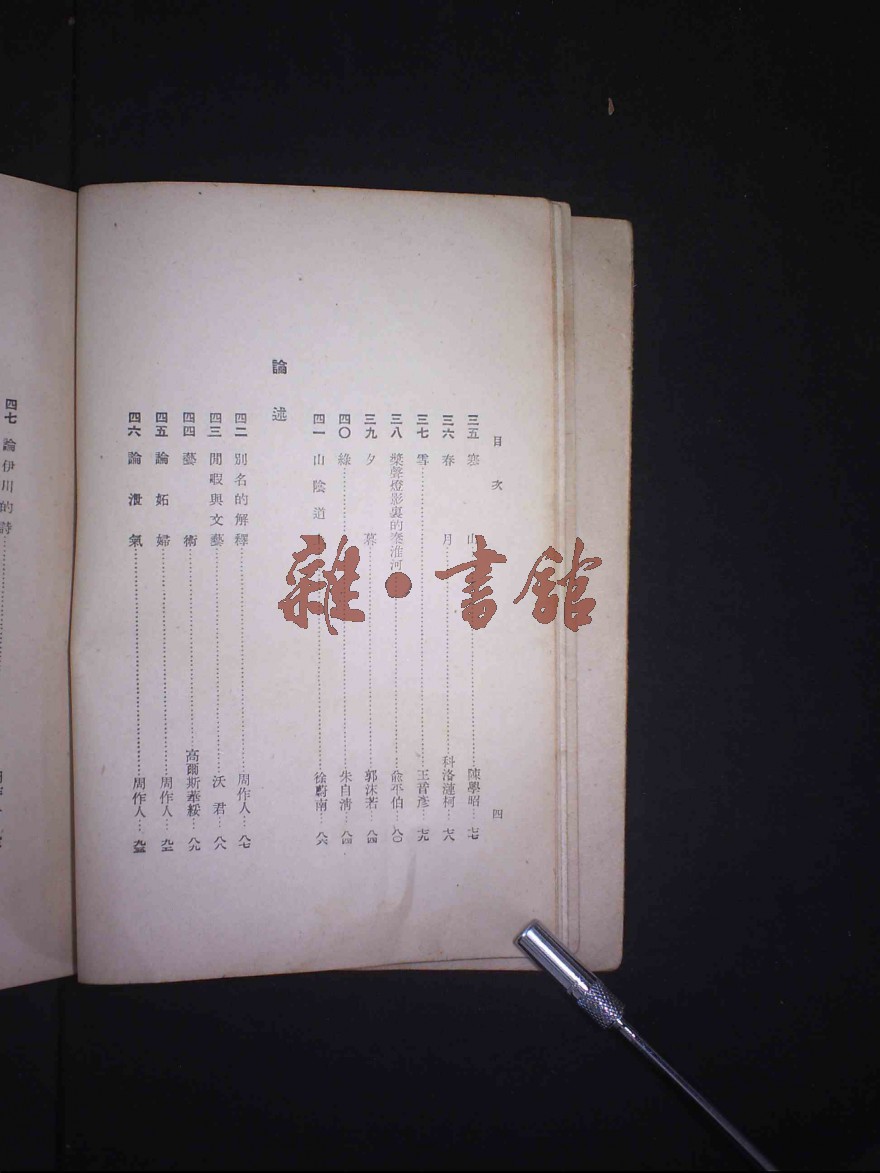 目次 四
三五 寒山……陳學昭…七七
三六 春月……科洛漣柯…七八
三七 雪……王晉彥…七九
三八 槳聲燈影裏的秦淮河……俞平伯…八〇
三九 夕暮……郭沫若…八四
四〇 綠……朱自清…八四
四一 山陰道上……徐蔚南…八六
論述
四二 別名的解釋……周作人…八七
四三 閒暇與文藝……沃君…八八
四四 藝術……高爾斯華綏…八九
四五 論妬婦……周作人…九二
四六 論泄氣……周作人…九三
四七 論伊川的詩……
雜・書館